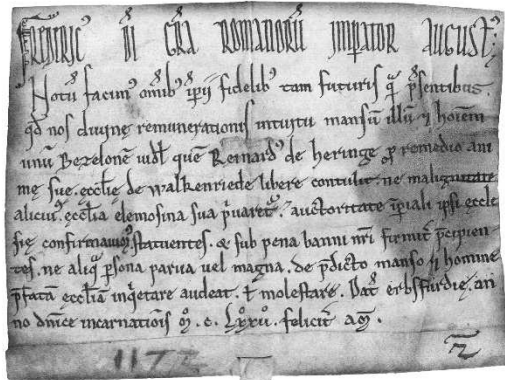 FRIDERIC' DI GRA ROMANORŪ IMPATOR AUGUST'
Notū facim' omīb' ipii fidelib' tam futuris q̄ p̄sentibus.
qd nos diuinę remunerationis intuitu mansū illū ⁊ hoīem
unū Bezelonē uidl' quē Reinard' de heringe p remedio ani
mę suę. ęcclię de walkenriede libere contulit. ne malignitate
alicui' ęcclia elemosina sua p̄uaret. auctoritate īpiali ipsi ęccle
się confirmauim'. statuentes. & sub pena banni nr̄i firmit' p̄cipien
tes. ne aliq̄ p̄sona parua uel magna. de p̄dicto manso ⁊ homine
p̄fatā ęccliā inq̄etare audeat. ł molestare. Dat' erbsfurdię. an
no dn̄icę incarnationis M. C. LXXII. felicit' am̄.
1172